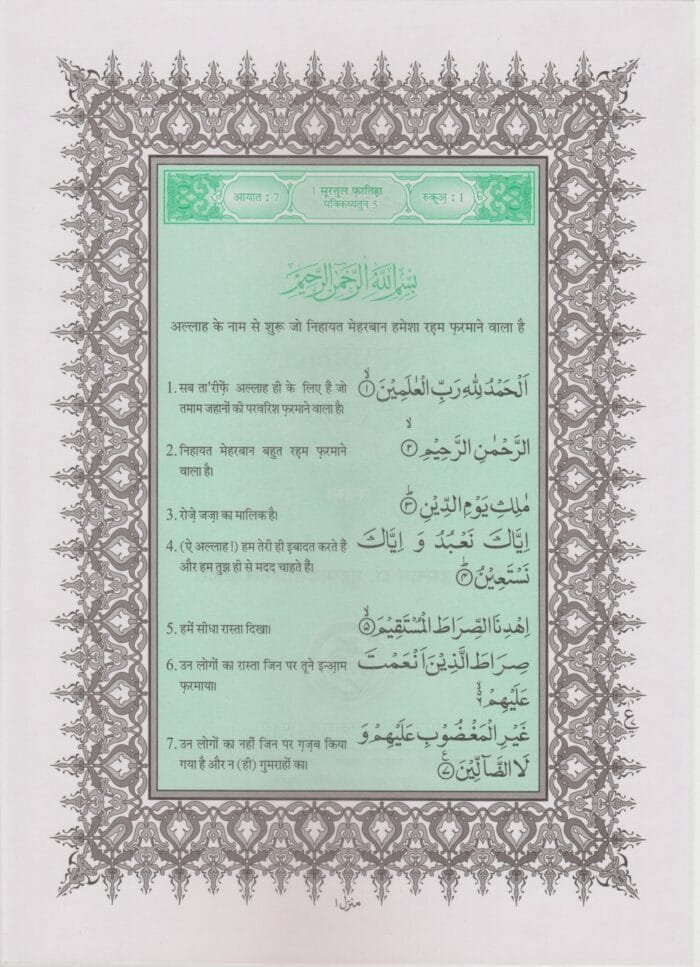 आयात : 7
1 सूरतुल फ़ातिहा
मक्किय्यतुन 5
रुकूअ : 1
بِسْمِ اللَّهِ الرَّحْمَٰنِ الرَّحِيمِ
अल्लाह के नाम से शुरू जो निहायत मेहरबान हमेशा रह़म फ़रमाने वाला है
1. सब ता'रीफ़ें अल्लाह ही के लिए हैं जो
तमाम जहानों की परवरिश फ़रमाने वाला है।
اَلْحَمْدُ لِلّٰهِ رَبِّ الْعٰلَمِيْنَ ۙ﴿۱﴾
2. निहायत मेहरबान बहुत रह़म फ़रमाने
वाला है।
الرَّحْمٰنِ الرَّحِيْمِ ۙ﴿۲﴾
3. रोज़े जज़ा का मालिक है।
مٰلِكِ يَوْمِ الدِّيْنِ ؕ﴿۳﴾
4. (ऐ अल्लाह!) हम तेरी ही इबादत करते हैं
और हम तुझ ही से मदद चाहते हैं।
اِيَّاكَ نَعْبُدُ وَ اِيَّاكَ
نَسْتَعِيْنُ ؕ﴿۴﴾
5. हमें सीधा रास्ता दिखा।
اِهْدِنَا الصِّرَاطَ الْمُسْتَقِيْمَ ۙ﴿۵﴾
6. उन लोगों का रास्ता जिन पर तूने इन्आ़म
फ़रमाया।
صِرَاطَ الَّذِيْنَ اَنْعَمْتَ
عَلَيْهِمْ ۙ۬ۦ
7. उन लोगों का नहीं जिन पर ग़ज़ब किया
गया है और न (ही) गुमराहों का।
غَيْرِ الْمَغْضُوْبِ عَلَيْهِمْ وَ
لَا الضَّآلِّيْنَ ﴿۷﴾
ع
منزل ۱